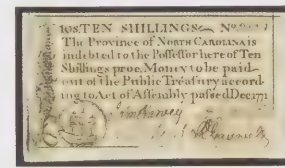 10S. TEN SHILLINGS No.
The Province of NORTH CAROLINA is
indebted to the Possessor here of Ten
Shillings proc. Money to be paid
out of the Public Treasury accord
ing to Act of Assembly passed Dec 1771